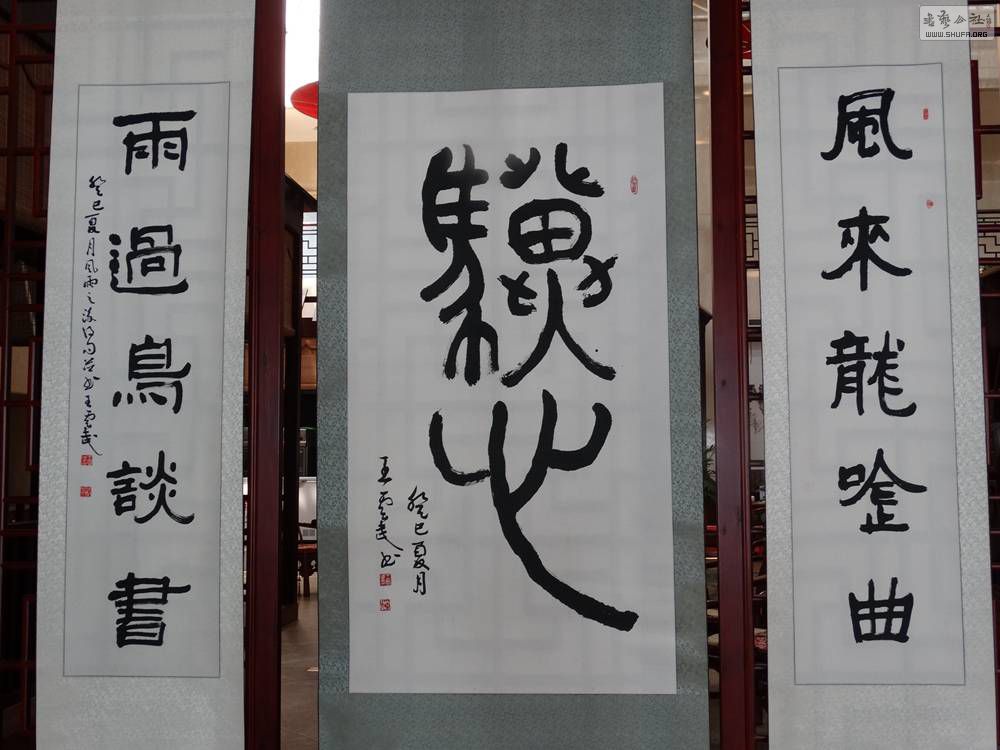 風來龍唫曲
驥
癸巳夏月
王雲武书
雨過鳥談書
癸巳夏月風雨之 王雲武
書藝公社
WWW.SHUFA.ORG